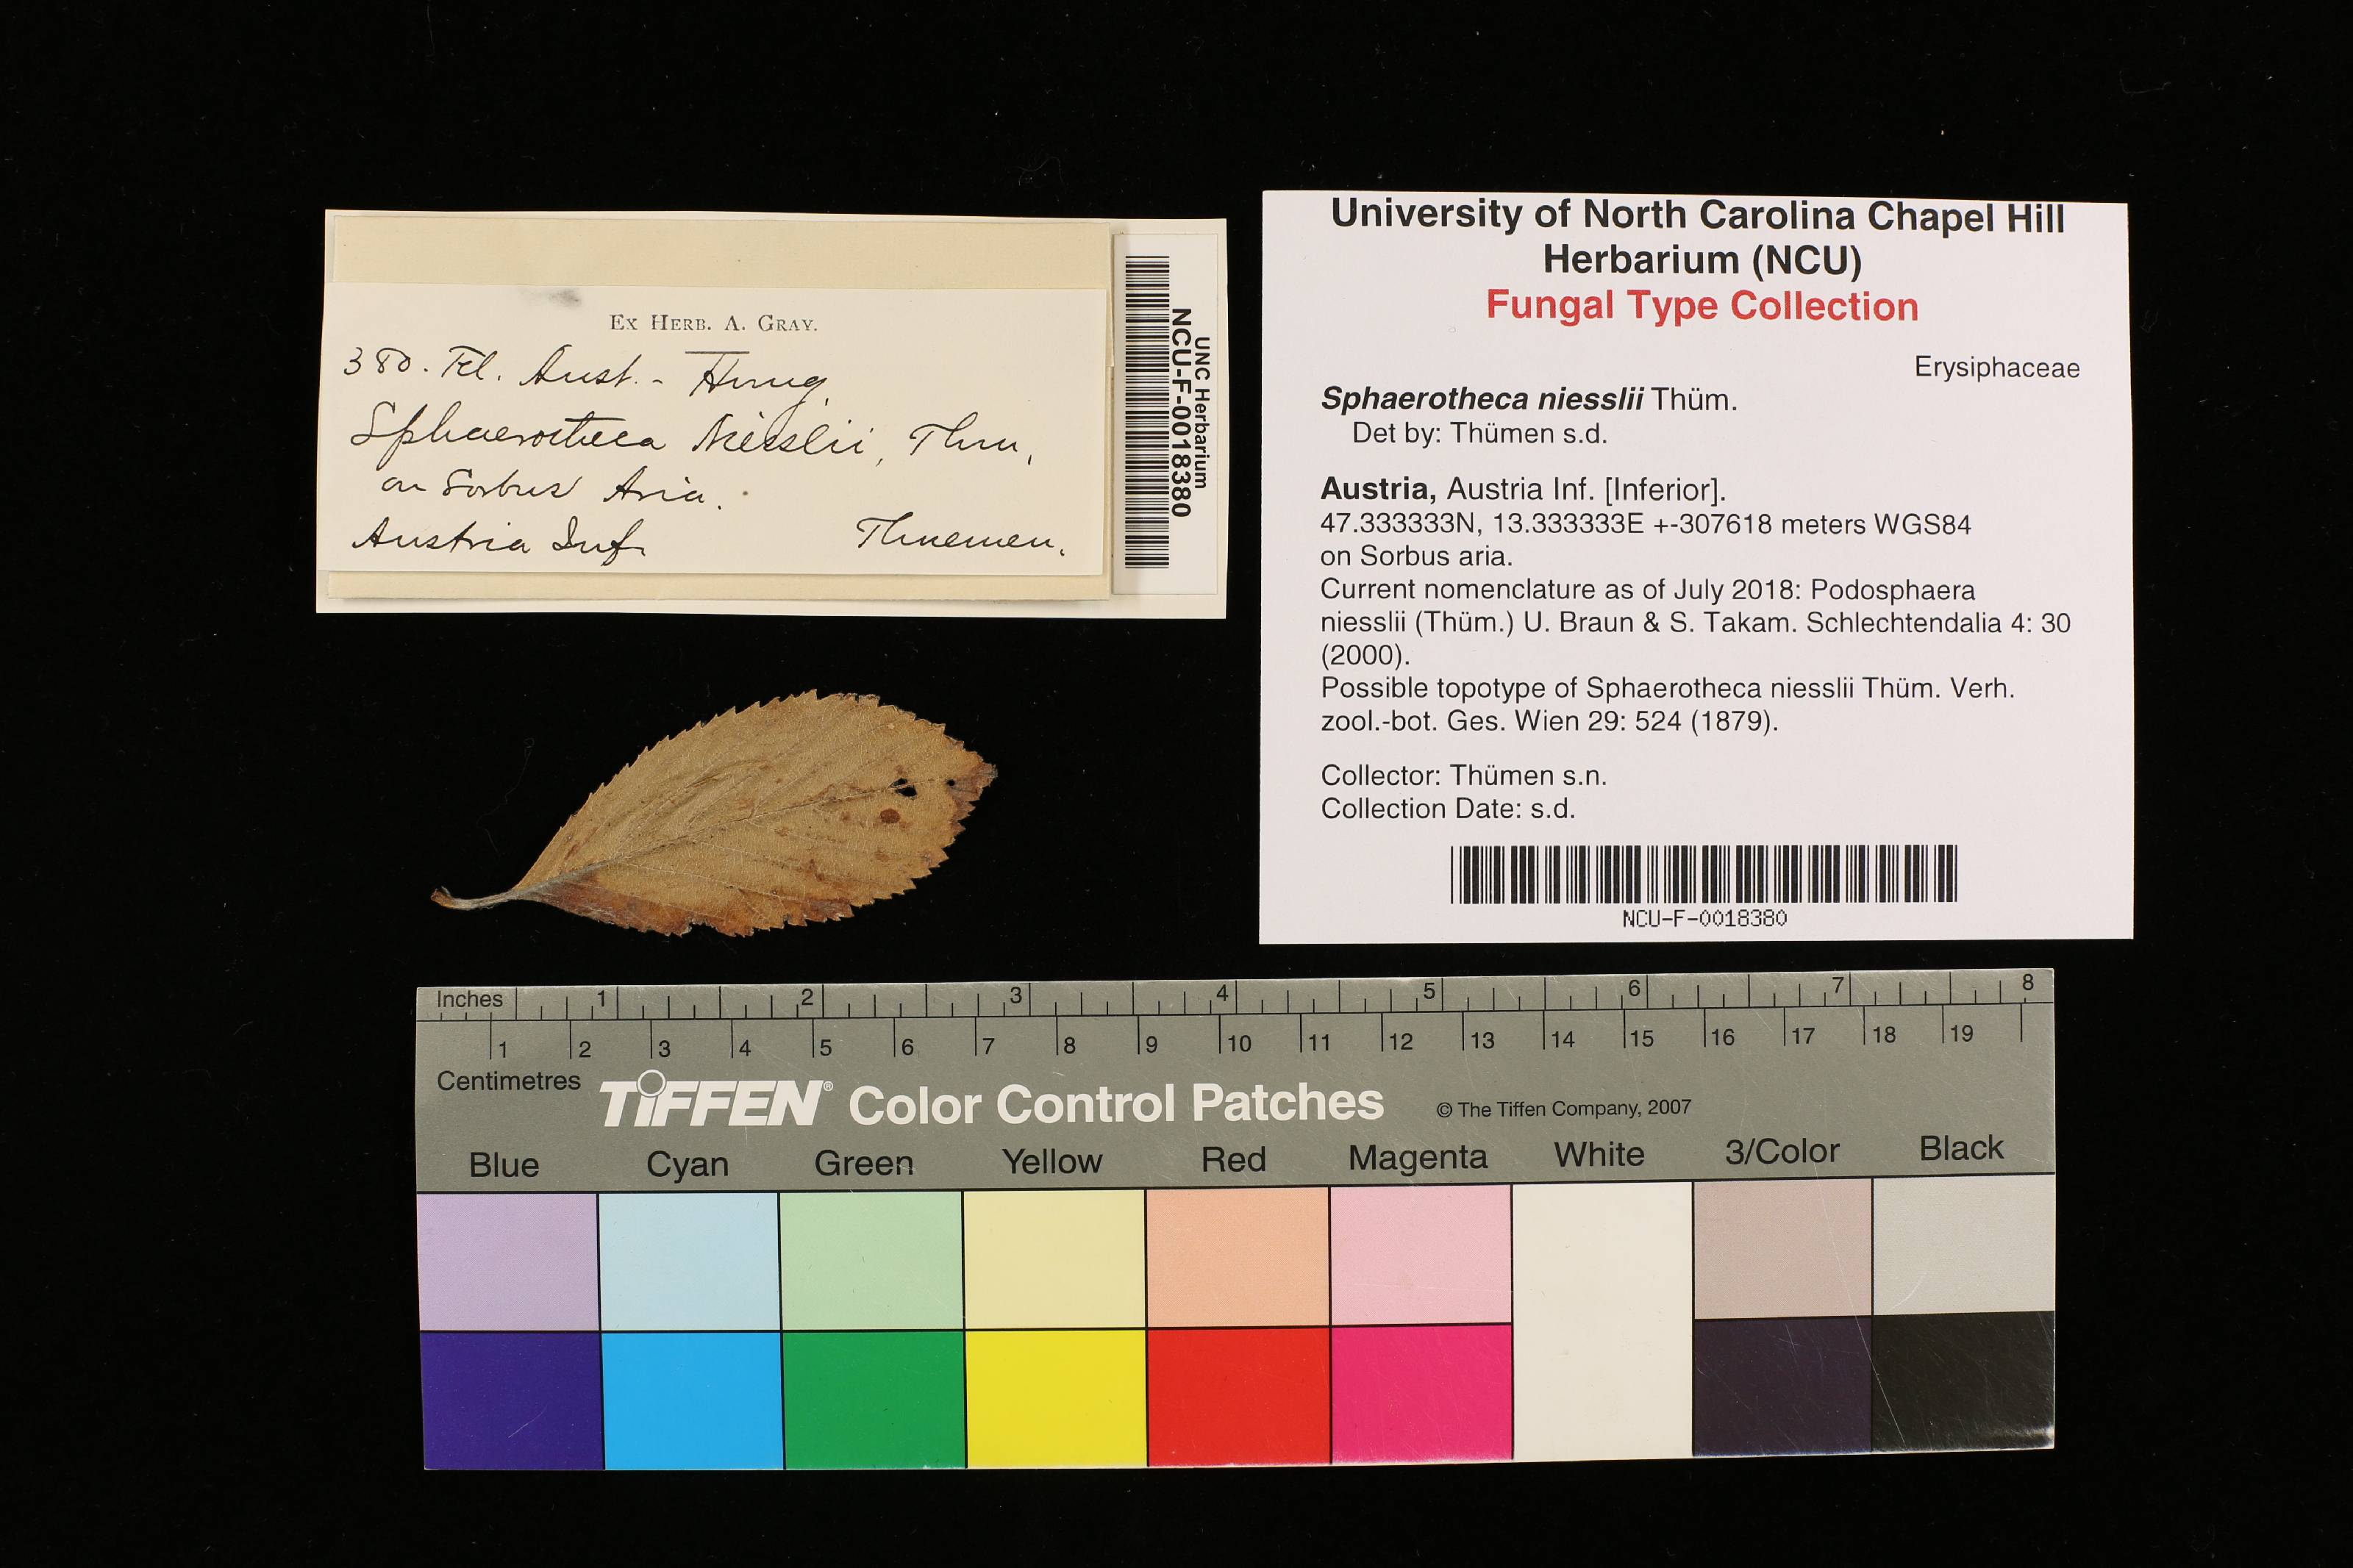 Ex Herb. A. Gray.
380. Fl. Aust. - Hung.
Sphaerotheca Niesslii, Thm.
on Sorbus Aria.
Austria Inf.
Thuemen.
UNC Herbarium
NCU-F-0018380
University of North Carolina Chapel Hill
Herbarium (NCU)
Fungal Type Collection
Erysiphaceae
Sphaerotheca niesslii Thüm.
Det by: Thümen s.d.
Austria, Austria Inf. [Inferior].
47.333333N, 13.333333E +-307618 meters WGS84
on Sorbus aria.
Current nomenclature as of July 2018: Podosphaera
niesslii (Thüm.) U. Braun & S. Takam. Schlechtendalia 4: 30
(2000).
Possible topotype of Sphaerotheca niesslii Thüm. Verh.
zool.-bot. Ges. Wien 29: 524 (1879).
Collector: Thümen s.n.
Collection Date: s.d.
NCU-F-0018380
Inches 1 2 3 4 5 6 7 8
1 2 3 4 5 6 7 8 9 10 11 12 13 14 15 16 17 18 19
Centimetres
TIFFEN® Color Control Patches © The Tiffen Company, 2007
Blue Cyan Green Yellow Red Magenta White 3/Color Black